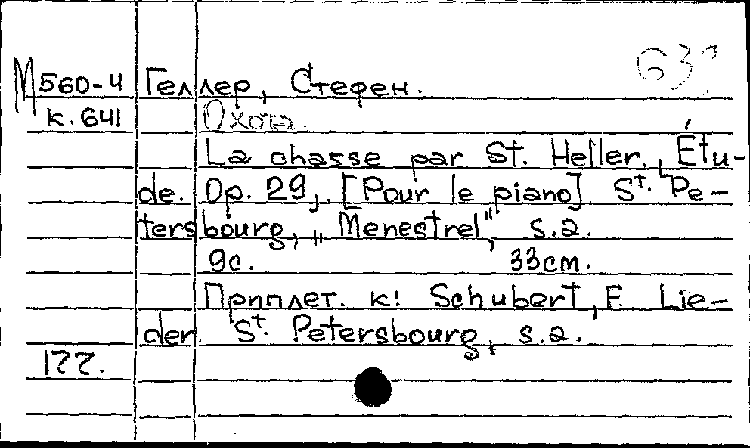 М560-4 Геллер, Стефен.
к. 641 Охота.
La chasse par St. Heller. Étu-
de. Op. 29,. [Pour le piano] St. Pe-
tersbourg, „Menestrel", s.a.
9с. 33см.
Приплет. к: Schubert, F. Lie-
der St. Petersbourg, s.a.
177.